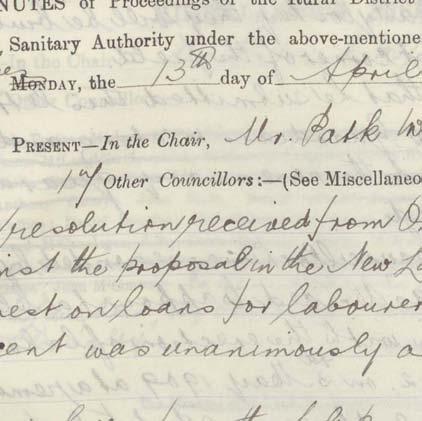 NUTES of Proceedings of the Rural District
Sanitary Authority under the above-mentione
MONDAY, the 13th day of April
PRESENT—In the Chair, Mr. Patk W
17 Other Councillors:—(See Miscellaneo
resolution received from
inst the proposal in the New La
rest on loans for labourer
cent was unanimously a